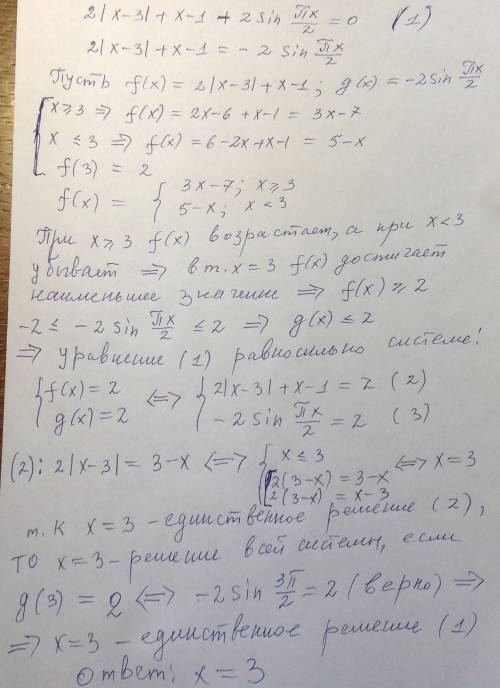 2|x-3| + x-1 + 2 sin πx/2 = 0 (1)
2|x-3| + x-1 = -2 sin πx/2
Пусть f(x) = 2|x-3| + x-1; g(x) = -2 sin πx/2
x ≥ 3 ⇒ f(x) = 2x-6 + x-1 = 3x-7
x ≤ 3 ⇒ f(x) = 6-2x+x-1 = 5-x
f(3) = 2
f(x) = { 3x-7; x ≥ 3
5-x; x < 3
При x ≥ 3 f(x) возрастает, а при x < 3
убывает ⇒ в т. x = 3 f(x) достигает
наименьшее значение ⇒ f(x) ≥ 2
-2 ≤ -2 sin πx/2 ≤ 2 ⇒ g(x) ≤ 2
⇒ уравнение (1) равносильно системе:
{ f(x) = 2 ⇔ { 2|x-3| + x-1 = 2 (2)
g(x) = 2 -2 sin πx/2 = 2 (3)
(2): 2|x-3| = 3-x ⇔ { x ≤ 3 ⇔ x = 3
[ 2(3-x) = 3-x
2(3-x) = x-3
т.к x = 3 - единственное решение (2),
то x = 3 - решение всей системы, если
g(3) = 2 ⇔ -2 sin 3π/2 = 2 (верно) ⇒
⇒ x = 3 - единственное решение (1)
Ответ: x = 3